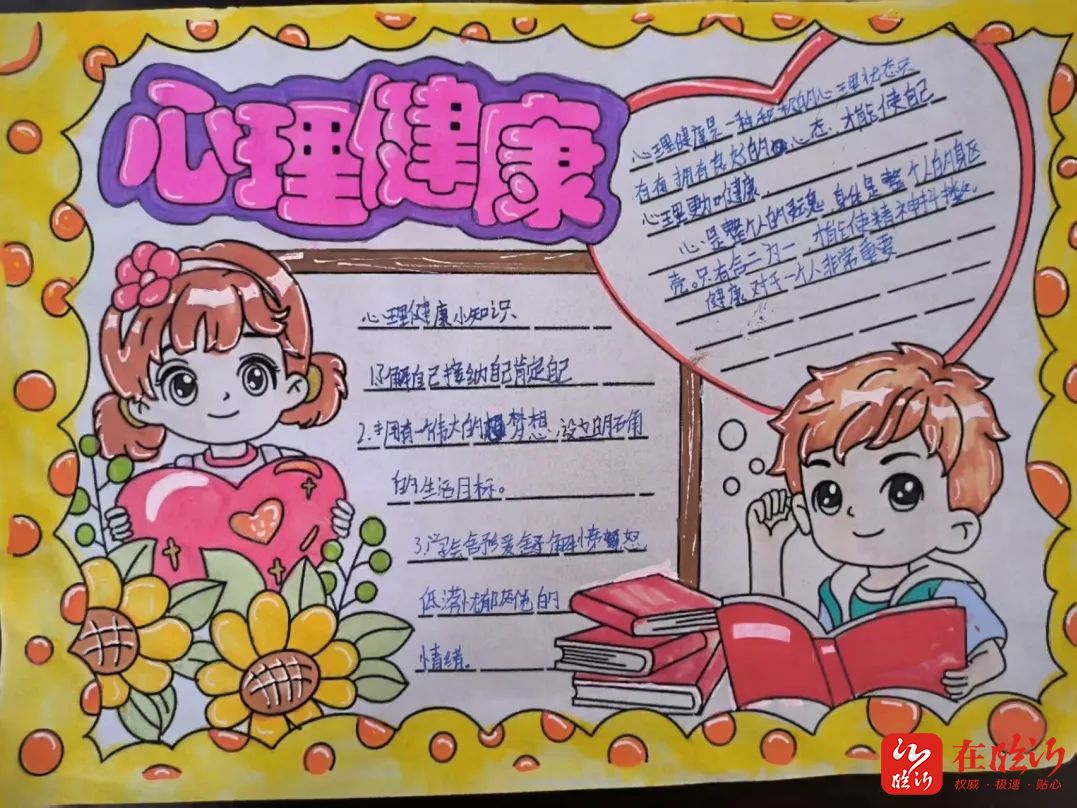 心理健康
心理健康是一种积极的心理状态只
有有拥有良好的心态.才能使自己
心理更加健康.
心是整个人的灵魂 身体是整个人的身区
壳。只有合二为一,才能使精神抖擞。
健康对于一个人非常重要
心理健康小知识
1.了解自己接纳自己肯定自己
2.拥有一个伟大的梦想.设立明确
的生活目标。
3.学会 怒
低落忧郁 的
情绪。
在临沂
临沂
权威·极速·贴心